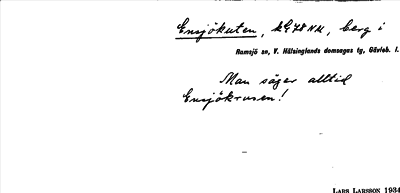 Ensjökuten, berg i
Ramsjö sn, V. Hälsinglands domsagas tg, Gävleb. l.
Man säger alltid
Ensjökrusen!
LARS LARSSON 1934